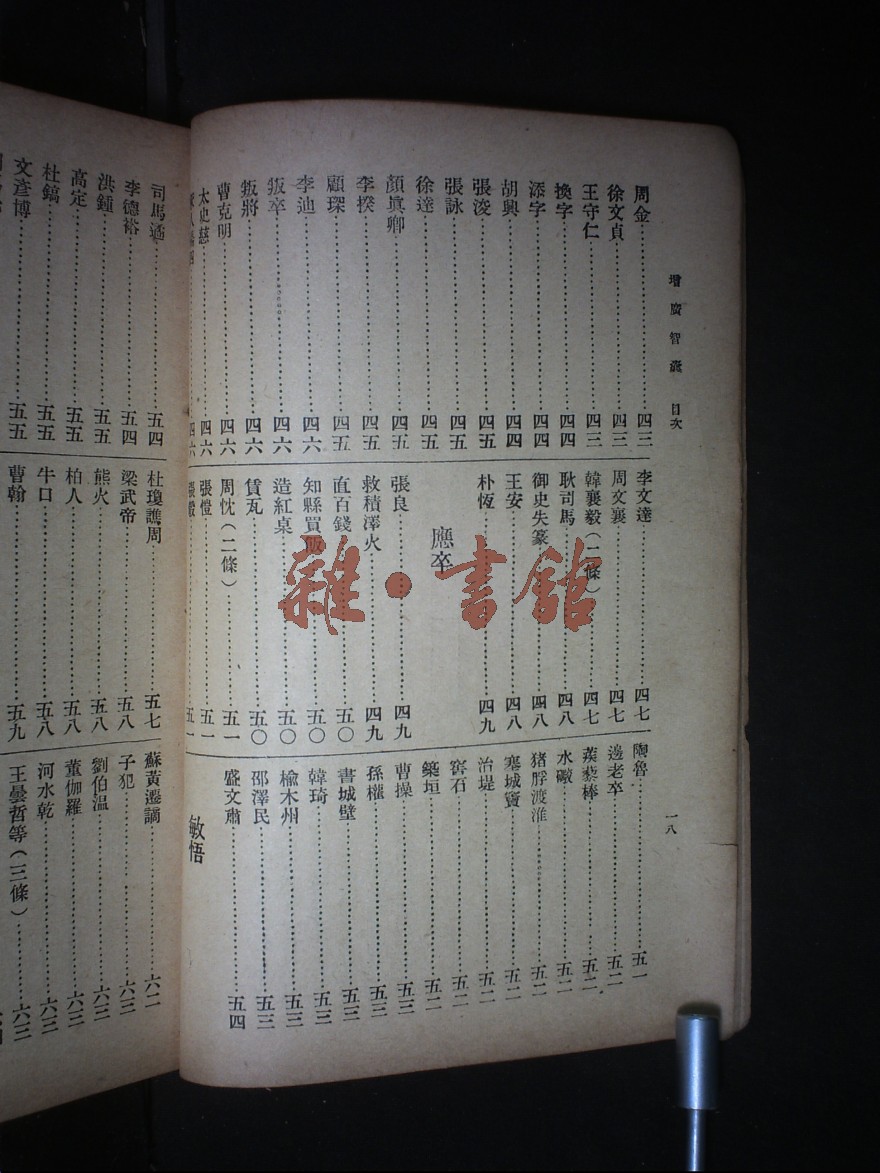 增廣智囊 目次
一八
周金 四三
徐文貞 四三
王守仁 四三
換字 四四
添字 四四
胡興 四四
張浚 四五
張詠 四五
徐達 四五
顏眞卿 四五
李揆 四五
顧琛 四五
李迪 四六
叛卒 四六
叛將 四六
曹克明 四六
太史慈 四六
四六
李文達 四七
周文襄 四七
韓襄毅(二條) 四七
耿司馬 四八
御史失篆 四八
王安 四八
朴恆 四九
應卒
張良 四九
救積澤火 四九
直百錢 五〇
知縣買飯 五〇
造紅桌 五〇
賃瓦 五〇
周忱(二條) 五一
張愷 五一
張 五一
陶魯 五一
邊老卒 五二
蒺藜棒 五二
水 五二
猪脬渡淮 五二
塞城竇 五二
治堤 五二
窖石 五二
築垣 五二
曹操 五三
孫權 五三
書城壁 五三
韓琦 五三
楡木州 五三
邵澤民 五三
盛文肅 五四
敏悟
司馬遹 五四
李德裕 五四
洪鍾 五五
高定 五五
杜鎬 五五
文彥博 五五
杜瓊譙周 五七
梁武帝 五八
熊火 五八
柏人 五八
牛口 五八
曹翰 五九
蘇黃遷謫 六二
子犯 六三
劉伯温 六三
董伽羅 六三
河水乾 六三
王曇哲等(三條) 六三
雜·書館